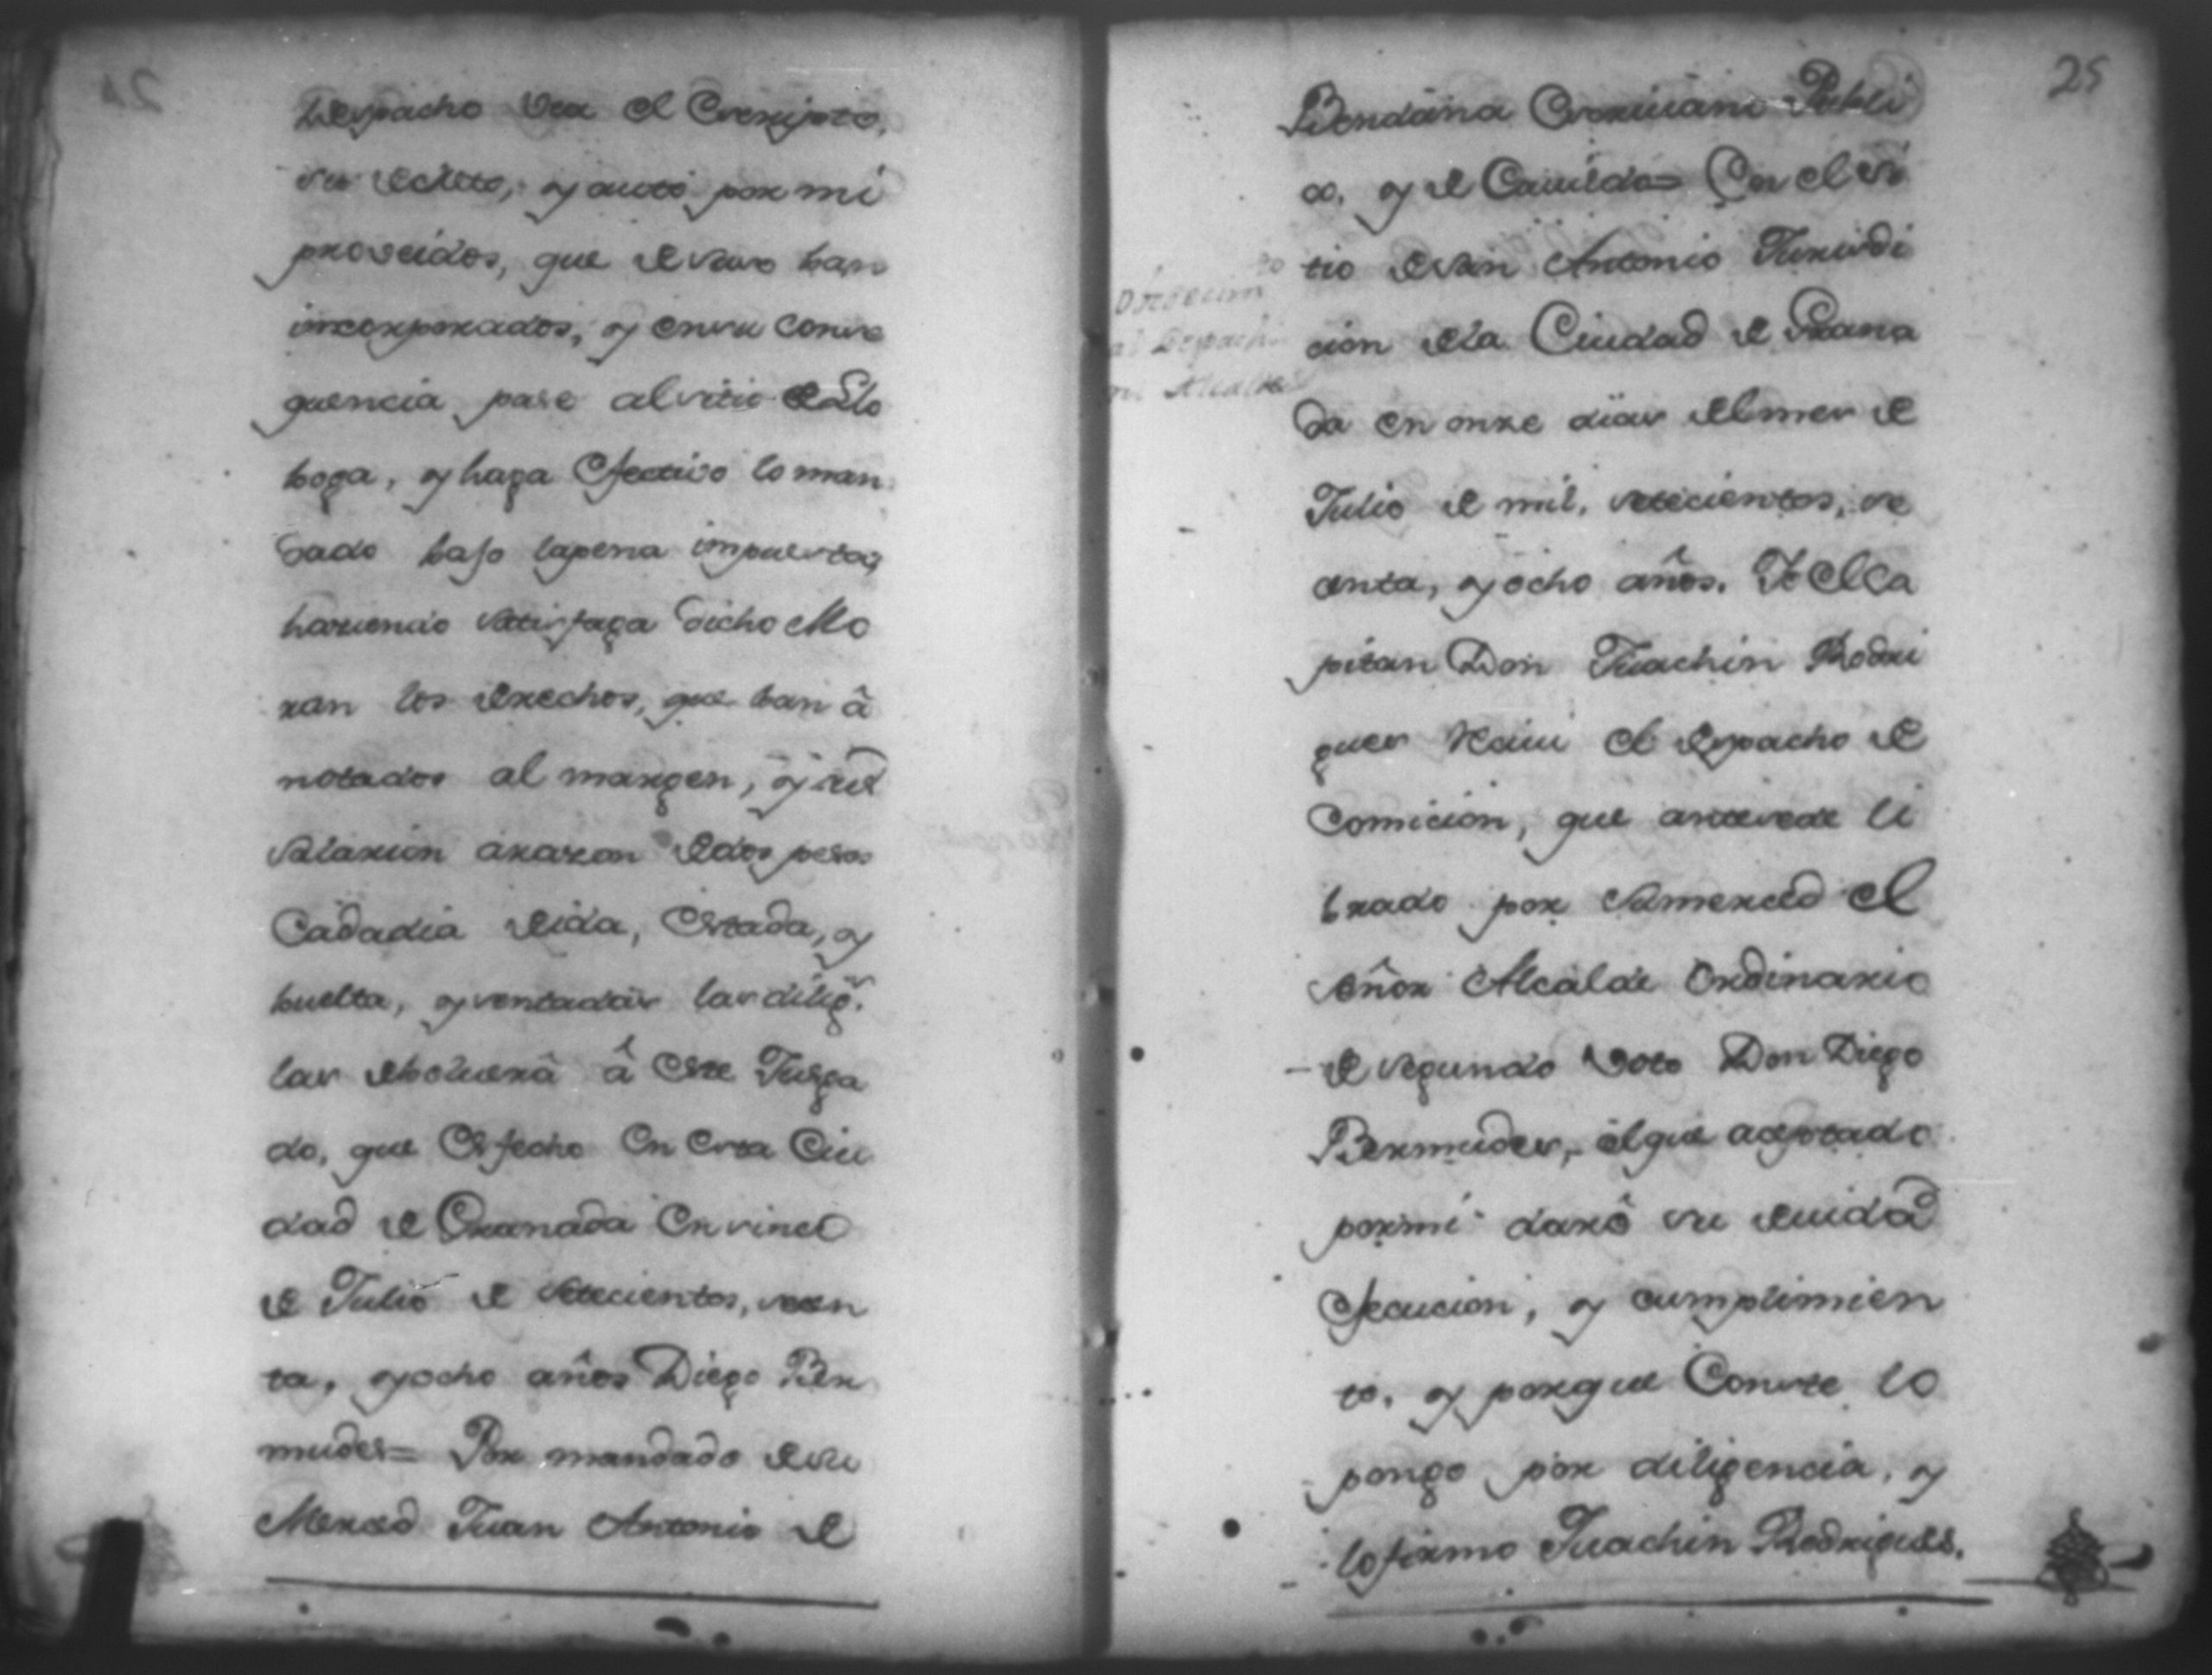 Despacho vea el Escripto,
su Edicto, y auto por mi
proveidos, que de suso ban
incorporados, y en su conse
quencia pase al sitio de Lo
boga, y haga efectivo lo man
dado bajo la pena impuesta,
haciendo satisfaga dicho Mo
ran los derechos, que ban â
notados al margen, y su
salarion a razon de dos pesos
Cada dia de ida, estada, y
buelta, y sentadas las dilig.s
las debolverâ â este Jusga
do, que es fecho en esta Ciu
dad de Granada en sinco
de Julio de setecientos, seten
ta, y ocho años Diego Ber
mudes= Por mandado de su
Merced Juan Antonio de
25
Bendaña Escrivano Publi
co, y de Cavildo= En el si
tio de San Antonio Jurisdi
cion de la Ciudad de Grana
da en onze dias del mes de
Julio de mil, setecientos, se
tenta, y ocho años. Yo el Ca
pitan Don Juachin Rodri
gues Recivi el despacho de
Comicion, que antecede li
brado por su merced el
señor Alcalde Ordinario
de segundo voto Don Diego
Bermudes, el que aceptado
por mi darê su devida
Execucion, y cumplimien
to. y porque Conste lo
pongo por diligencia, y
lo firmo Juachin Rodrigues.
al Despacho